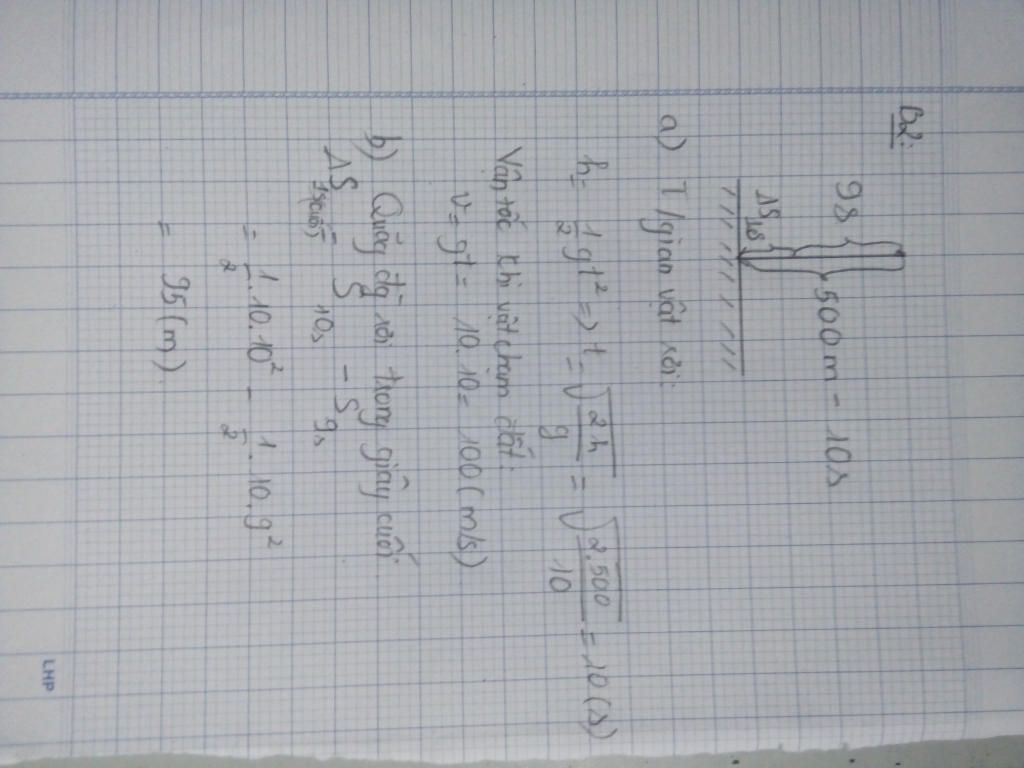 B2:
9s
ΔS 1s
500m - 10s
a) T/gian vật rơi:
h = 1/2 gt² => t = √(2h/g) = √(2.500/10) = 10 (s)
Vận tốc khi vật chạm đất:
v = gt = 10.10 = 100 (m/s)
b) Quãng đg rơi trong giây cuối
ΔS 1scuối = S 10s - S 9s
= 1/2 .10.10² - 1/2 .10.9²
= 95 (m)
LHP